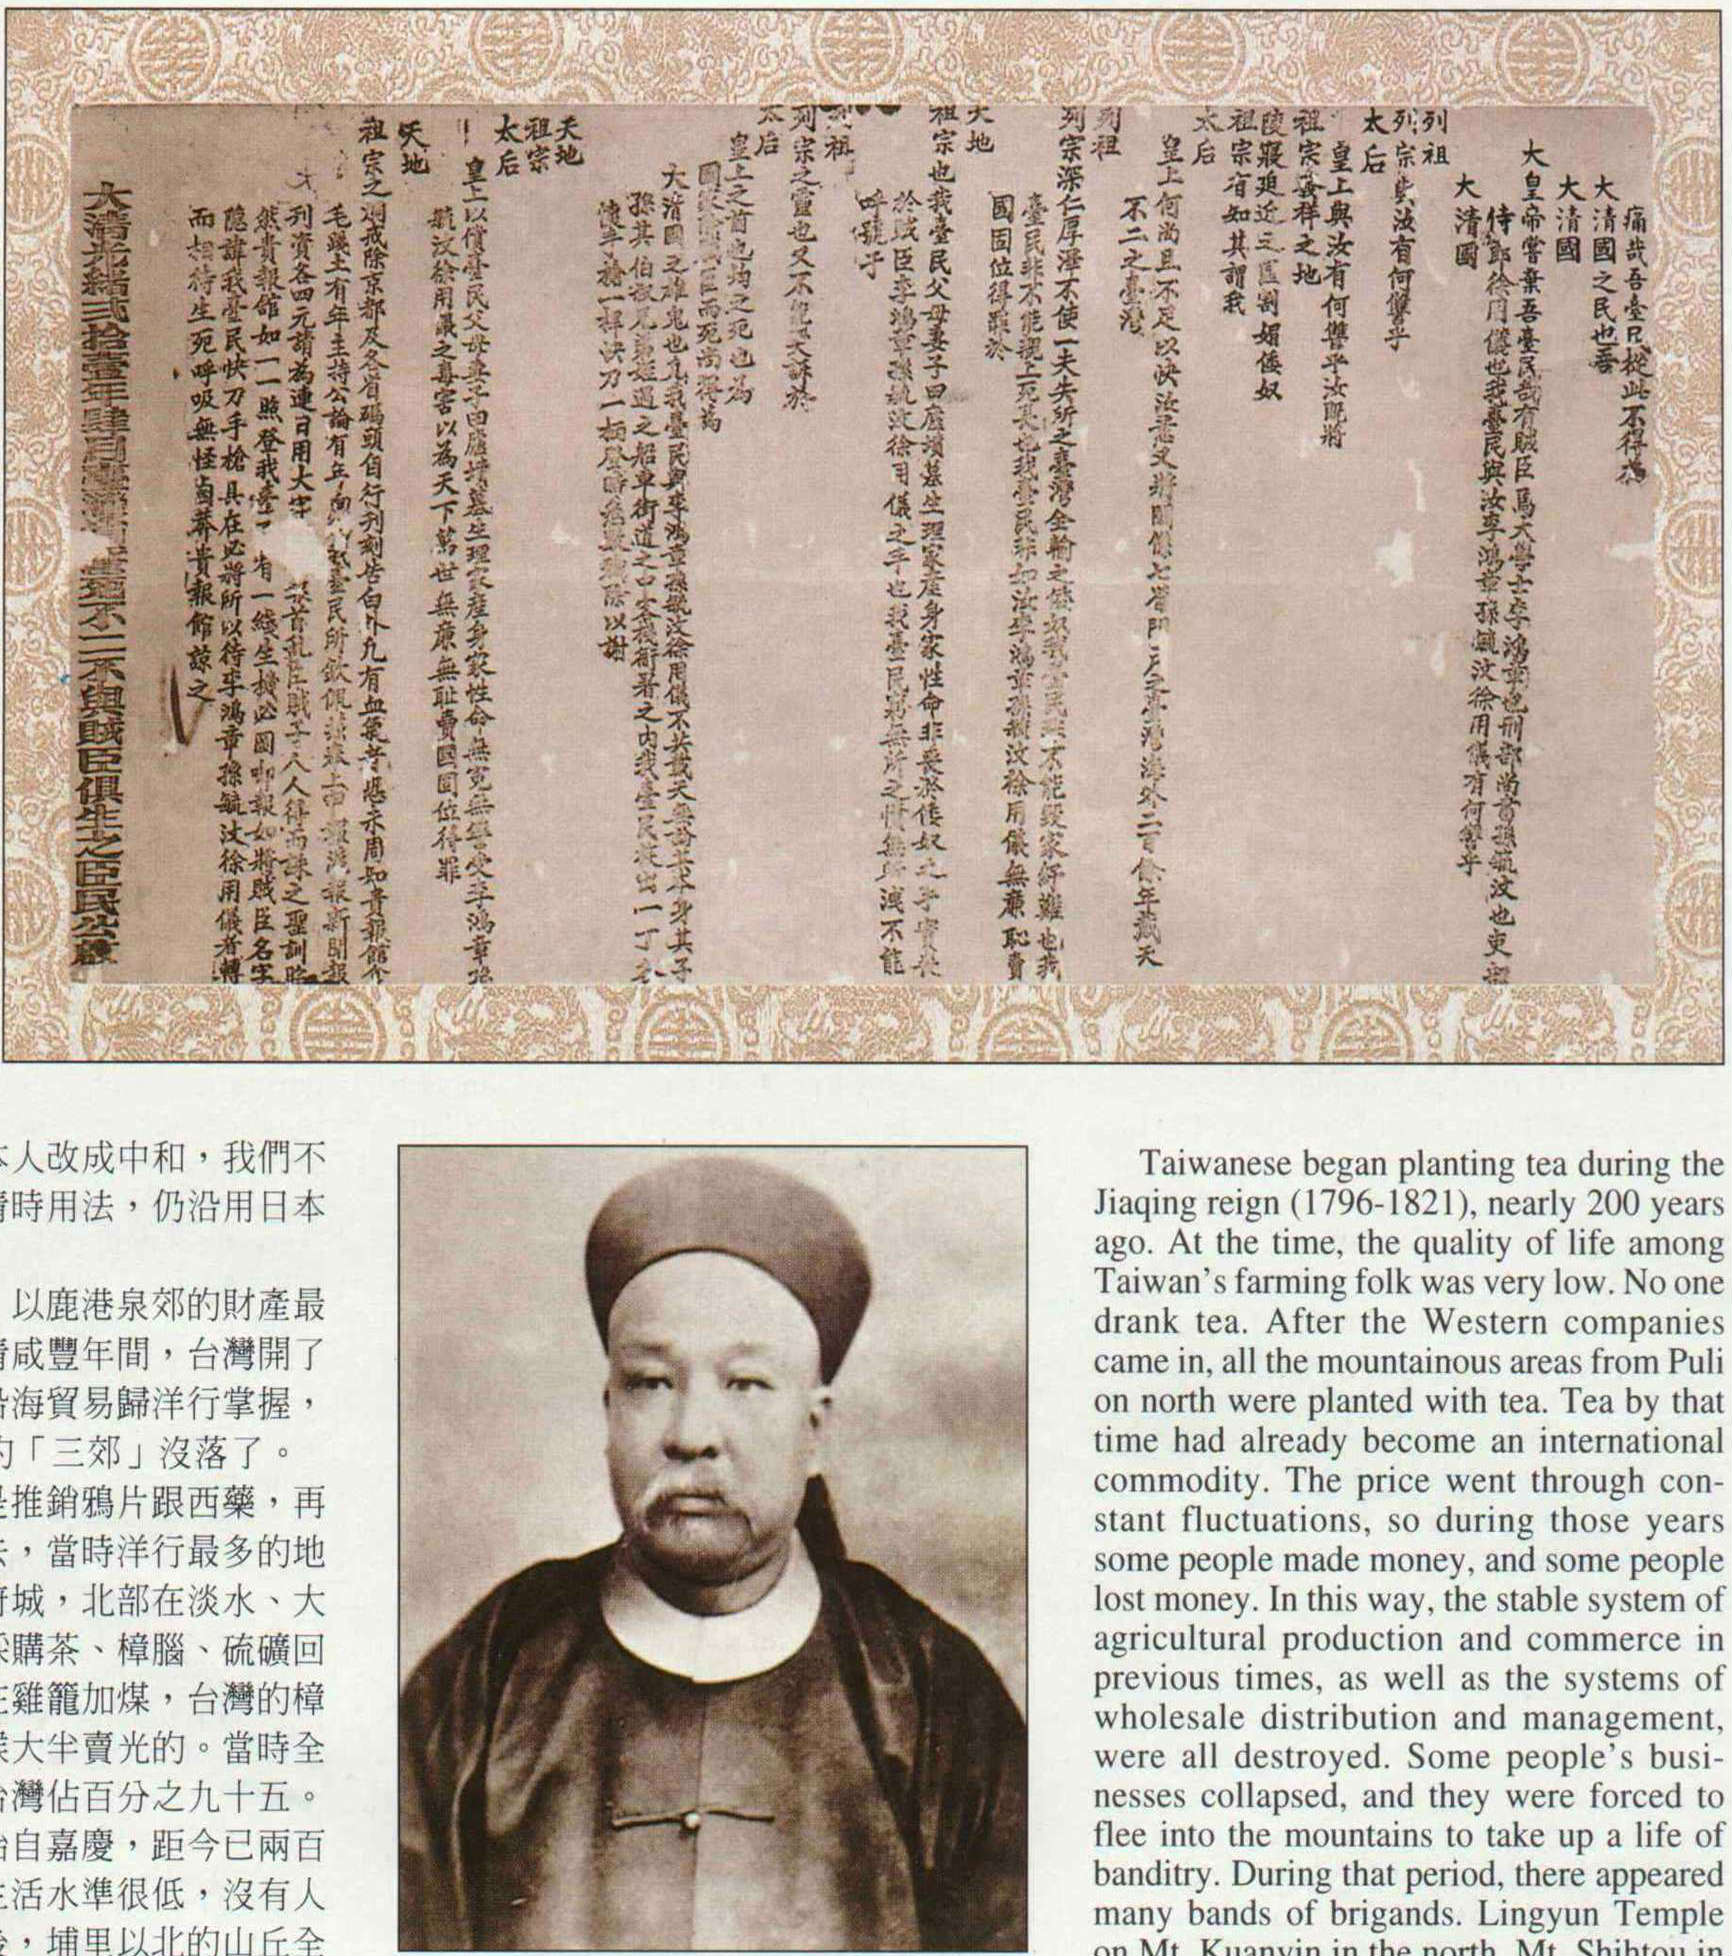 痛哉吾臺民從此不得為
大清國之民也吾
大清國
大皇帝嘗棄吾臺民哉有賊臣焉大學士李鴻章也刑部尚書孫毓汶也吏部
侍郎徐用儀也我臺民與汝李鴻章孫毓汶徐用儀有何讐乎
大清國
列祖
列宗與汝有何讐乎
太后
皇上與汝有何讐乎汝既將
祖宗發祥之地
陵寢迫近之區割媚倭奴
祖宗有如其謂我
太后
皇上何尚且不足以快汝意又將關係七省門戶之臺灣海外二百餘年戴天
不二之臺灣
列祖
列宗深仁厚澤不使一夫失所之臺灣全輸之倭奴我臺民非不能毀家紓難也我
臺民非不能親上死長也我臺民非如汝李鴻章孫毓汶徐用儀無廉恥賣
國固位得罪於
天地
祖宗也我臺民父母妻子田廬墳墓生理家產身家性命非喪於倭奴之手實喪
於賊臣李鴻章孫毓汶徐用儀之手也我臺民窮無所之憤無所洩不能
呼號于
列祖
列宗之靈也又不能哭訴於
太后
皇上之前也均之死也為
國家除賊臣而死尚得為
大清國之雄鬼也凡我臺民與李鴻章孫毓汶徐用儀不共戴天無論其本身其子
孫其伯叔兄弟姪遇之船車街道之中客棧衙署之內我臺民族出一丁各
懷手槍一桿快刀一柄登時悉數殲除以謝
天地
祖宗
太后
皇上以償臺民父母妻子田廬墳墓生理家產身家性命無冤無讐受李鴻章孫
毓汶徐用儀之毒害以為天下萬世無廉無恥賣國固位得罪
天地
祖宗之炯戒除京都及各省碼頭自行刊刻告白外凡有血氣者恐未周知貴報館食
毛踐土有年主持公論有年向為我臺民所欽佩茲奉上申報滬報新聞報
刊資各四元請為連日用大字
梟首亂臣賊子人人得而誅之聖訓昭
然貴報館如一一照登我臺
有一綫生機必圖啣報如將賊臣名字
隱諱我臺民快刀手槍具在必將所以待李鴻章孫毓汶徐用儀者轉
而相待生死呼吸無怪鹵莽貴報館諒之
大清光緒弍拾壹年肆月臺灣
誓死不二不與賊臣俱生之臣民公啟
本人改成中和，我們不
清時用法，仍沿用日本
以鹿港泉郊的財產最
清咸豐年間，台灣開了
沿海貿易歸洋行掌握，
的「三郊」沒落了。
是推銷鴉片跟西藥，再
去，當時洋行最多的地
府城，北部在淡水、大
採購茶、樟腦、硫礦回
在雞籠加煤，台灣的樟
業大半賣光的。當時全
台灣佔百分之九十五。
始自嘉慶，距今已兩百
生活水準很低，沒有人
後，埔里以北的山丘全
Taiwanese began planting tea during the
Jiaqing reign (1796-1821), nearly 200 years
ago. At the time, the quality of life among
Taiwan's farming folk was very low. No one
drank tea. After the Western companies
came in, all the mountainous areas from Puli
on north were planted with tea. Tea by that
time had already become an international
commodity. The price went through con-
stant fluctuations, so during those years
some people made money, and some people
lost money. In this way, the stable system of
agricultural production and commerce in
previous times, as well as the systems of
wholesale distribution and management,
were all destroyed. Some people's busi-
nesses collapsed, and they were forced to
flee into the mountains to take up a life of
banditry. During that period, there appeared
many bands of brigands. Lingyun Temple
on Mt. Kuanyin in the north, Mt. Shihtou in